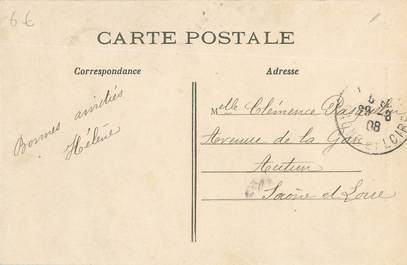 6€
CARTE POSTALE
Correspondance
Adresse
Bonnes amitiés
Hélène
Melle Clémence
Avenue de la Gare
Autun
Saône et Loire
29 8
08
ET LOIRE